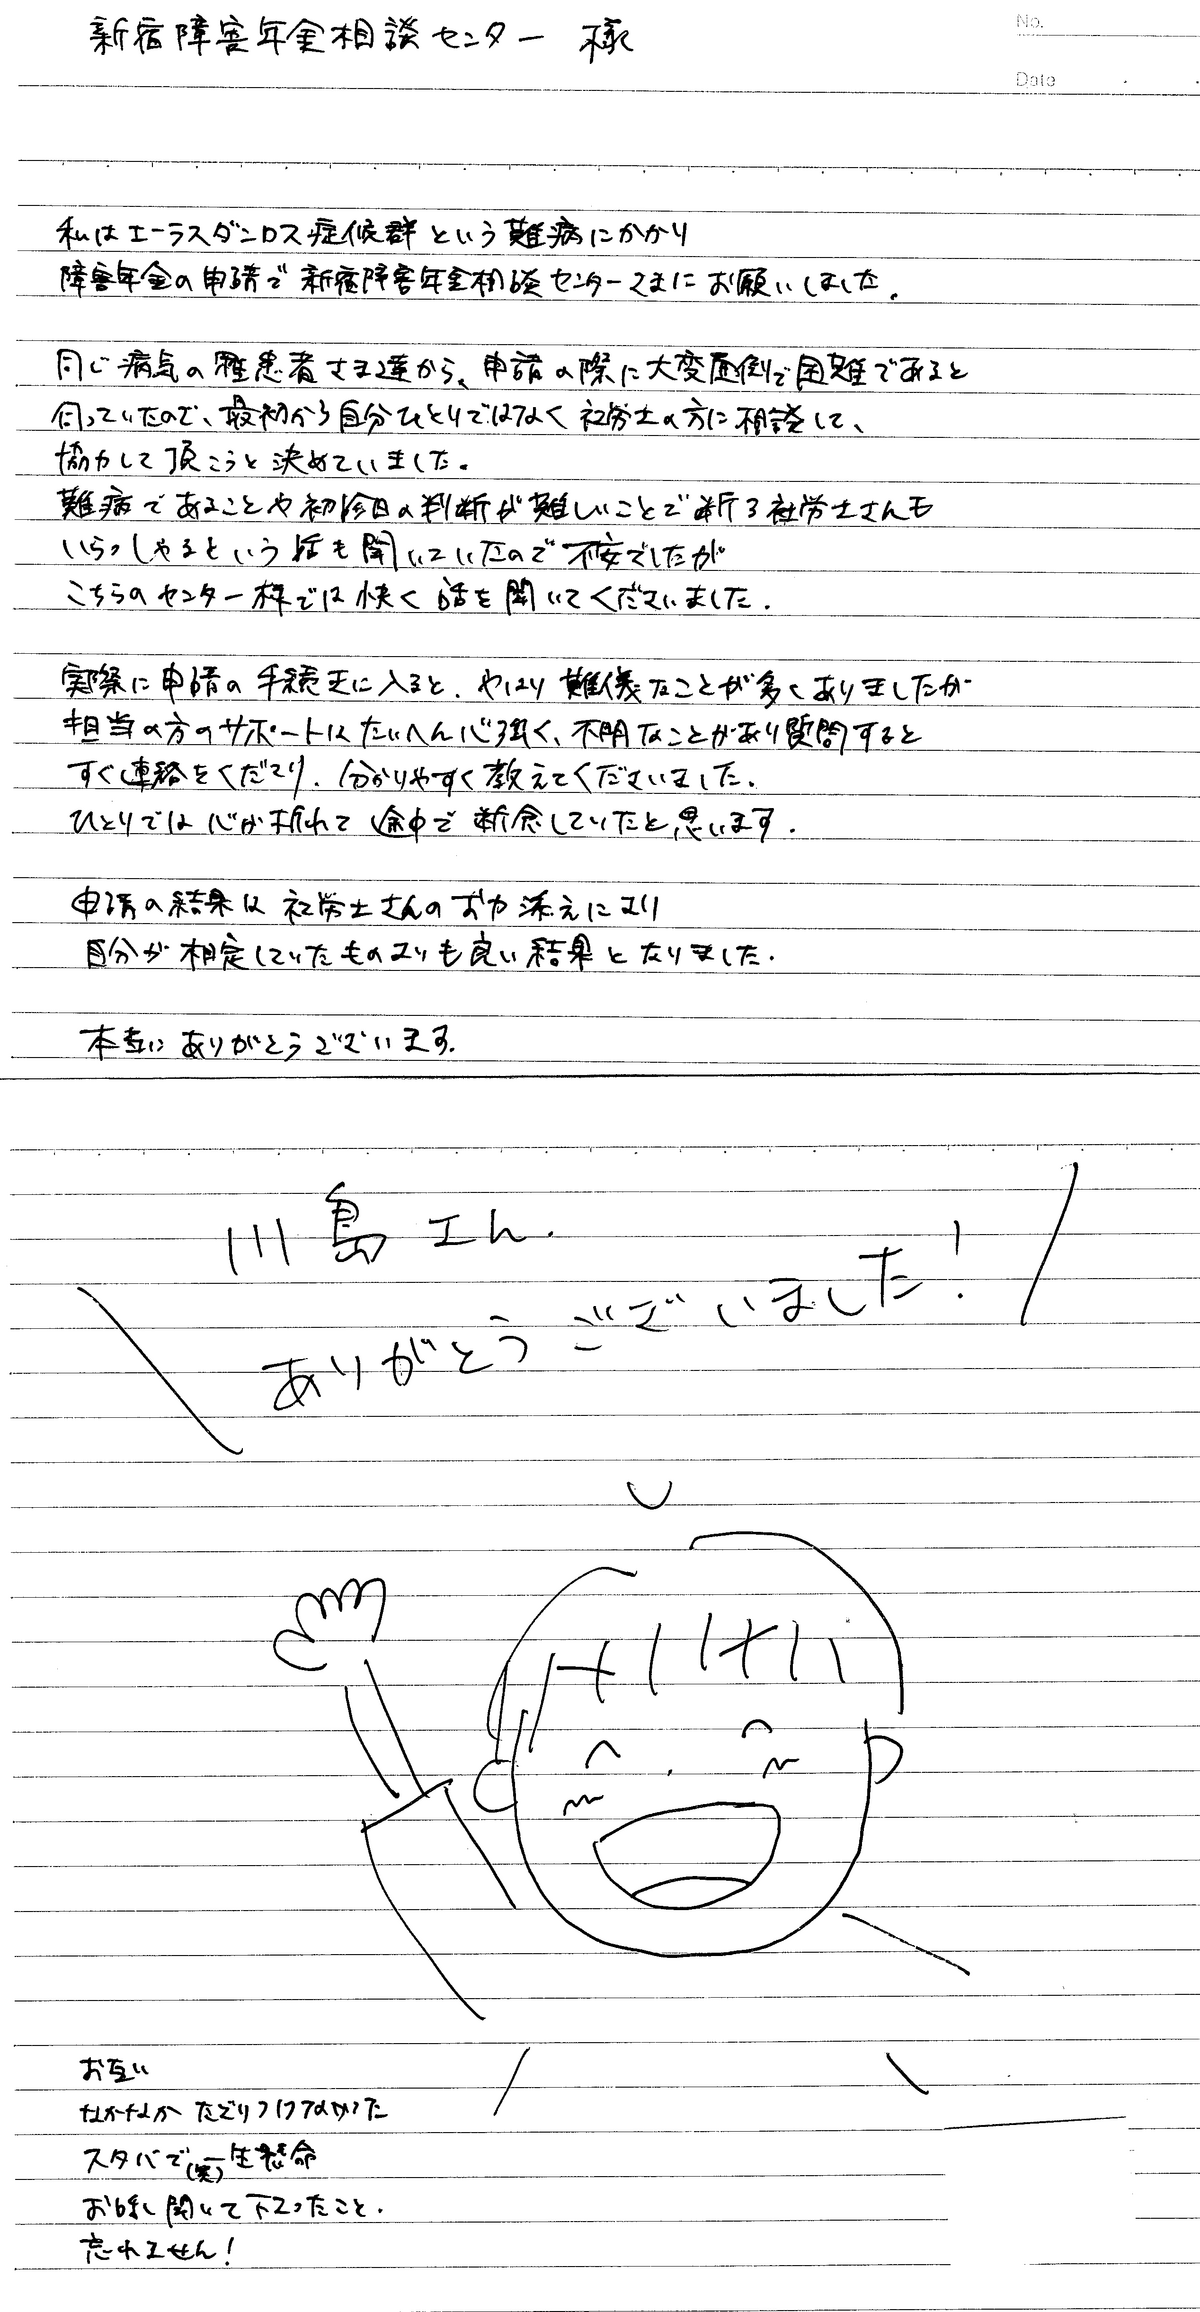 新宿障害年金相談センター 様
No.
Date
私はエーラスダンロス症候群という難病にかかり
障害年金の申請で新宿障害年金相談センターさまにお願いしました。
同じ病気の罹患者さま達から、申請の際に大変面倒で困難であると
伺っていたので、最初から自分ひとりではなく社労士の方に相談して、
協力して頂こうと決めていました。
難病であることや初診日の判断が難しいことで断る社労士さんも
いらっしゃるという話も聞いていたので不安でしたが
こちらのセンター様では快く話を聞いてくださいました。
実際に申請の手続きに入ると、やはり難儀なことが多くありましたが
担当の方のサポートはたいへん心強く、不明なことがあり質問すると
すぐ連絡をくださり、分かりやすく教えてくださいました。
ひとりでは心が折れて途中で断念していたと思います。
申請の結果は社労士さんのお力添えにより
自分が想定していたものよりも良い結果となりました。
本当にありがとうございます。
川島さん
ありがとうございました!
お互い
なかなかたどりつけなかった
スタバで(笑)一生懸命
お話し聞いて下さったこと。
忘れません!